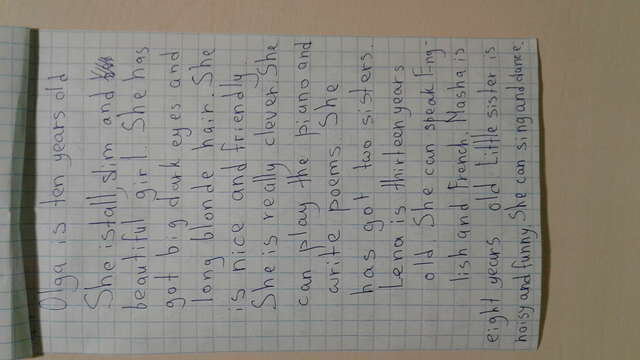 Olga is ten years old
She is tall, slim and
beautiful girl. She has
got big dark eyes and
long blonde hair. She
is nice and friendly.
She is really clever. She
can play the piano and
write poems. She
has got two sisters.
Lena is thirteen years
old. She can speak Eng-
lish and French. Masha is
eight years old. Little sister is
noisy and funny. She can sing and dance.